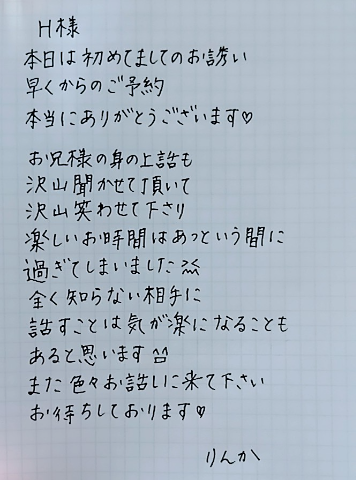 H様
本日は初めてましてのお誘い
早くからのご予約
本当にありがとうございます♡
お兄様の身の上話も
沢山聞かせて頂いて
沢山笑わせて下さり
楽しいお時間はあっという間に
過ぎてしまいました
全く知らない相手に
話すことは気が楽になることも
あると思います
また色々お話しに来て下さい
お待ちしております♡
りんか